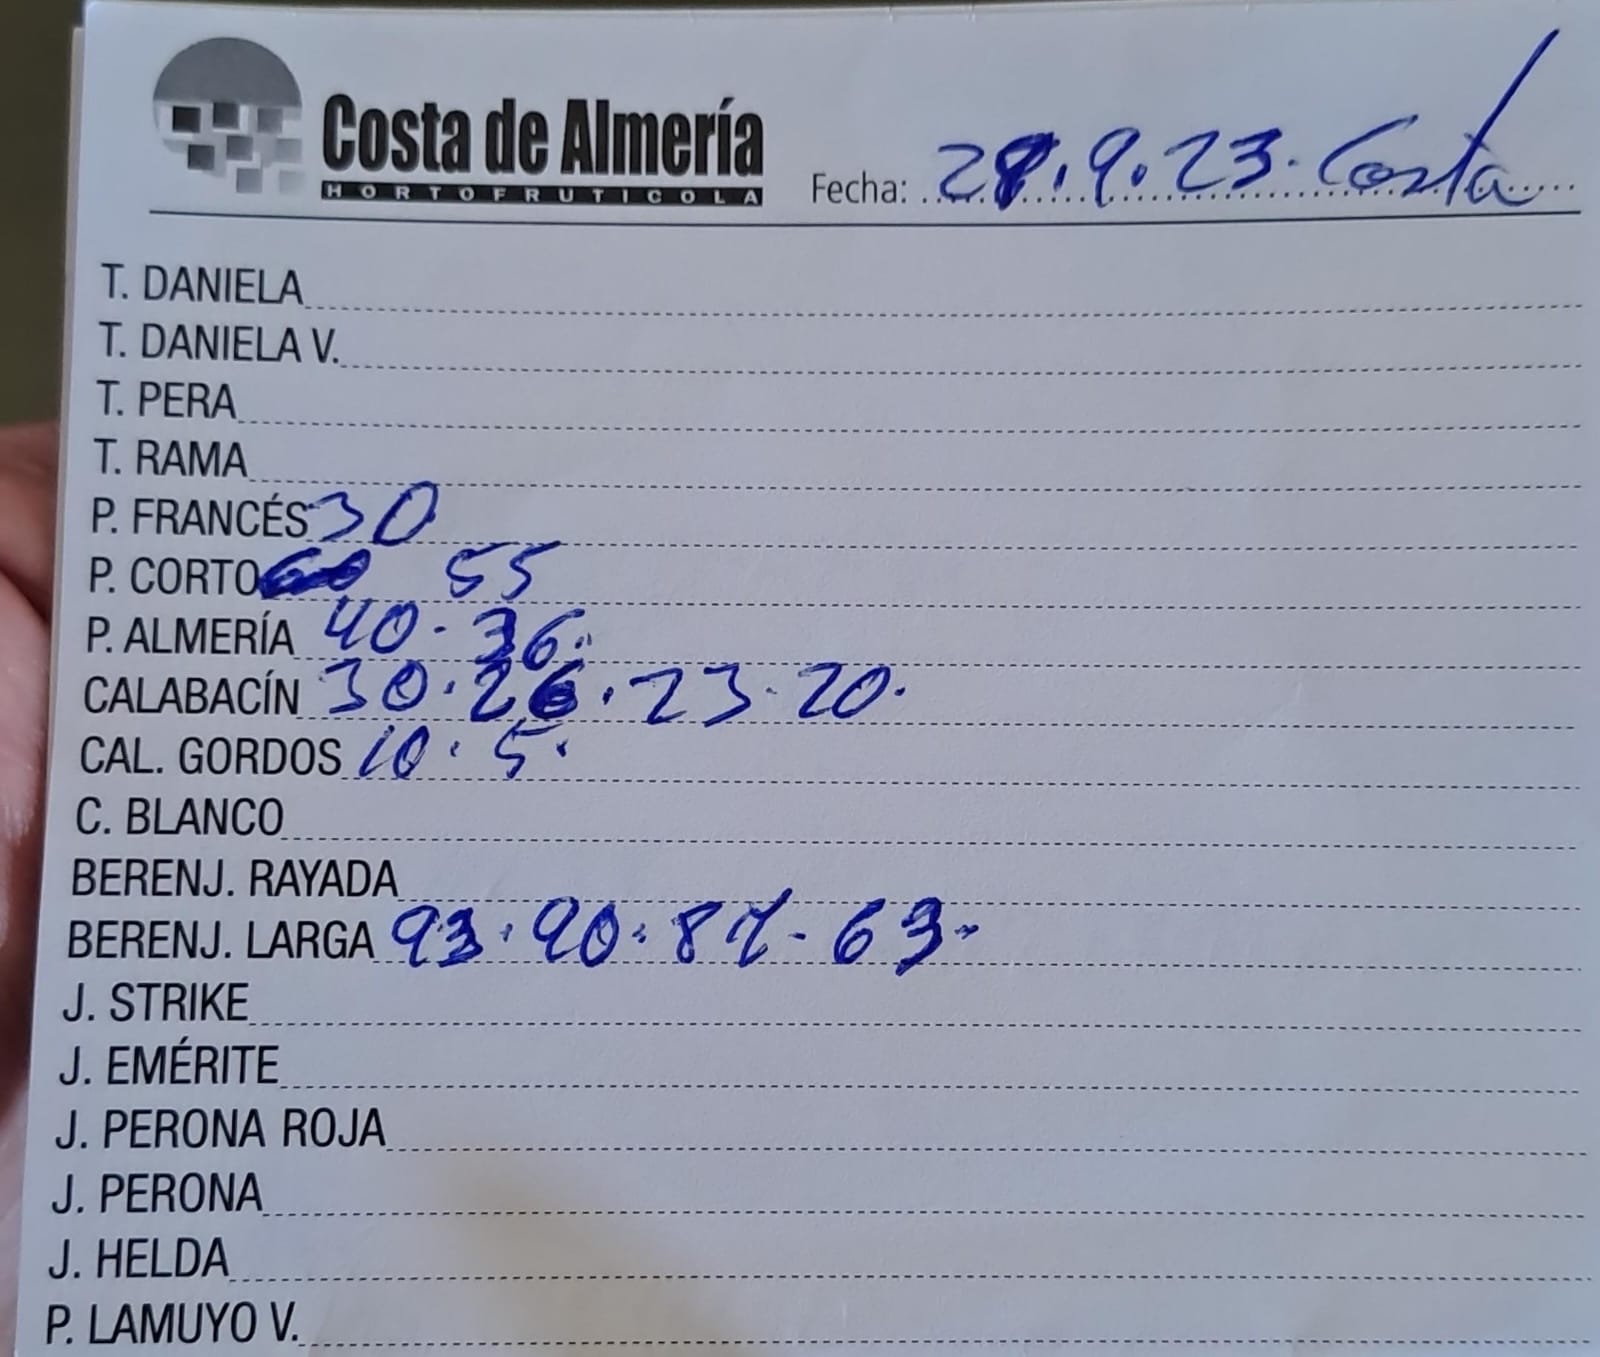 Costa de Almería
HORTOFRUTICOLA
Fecha: 28.9.23. Costa
T. DANIELA
T. DANIELA V.
T. PERA
T. RAMA
P. FRANCÉS 30
P. CORTO 55
P. ALMERÍA 40. 36.
CALABACÍN 30. 26. 23. 20.
CAL. GORDOS 10. 5.
C. BLANCO
BERENJ. RAYADA
BERENJ. LARGA 93. 90. 87. 63.
J. STRIKE
J. EMÉRITE
J. PERONA ROJA
J. PERONA
J. HELDA
P. LAMUYO V.